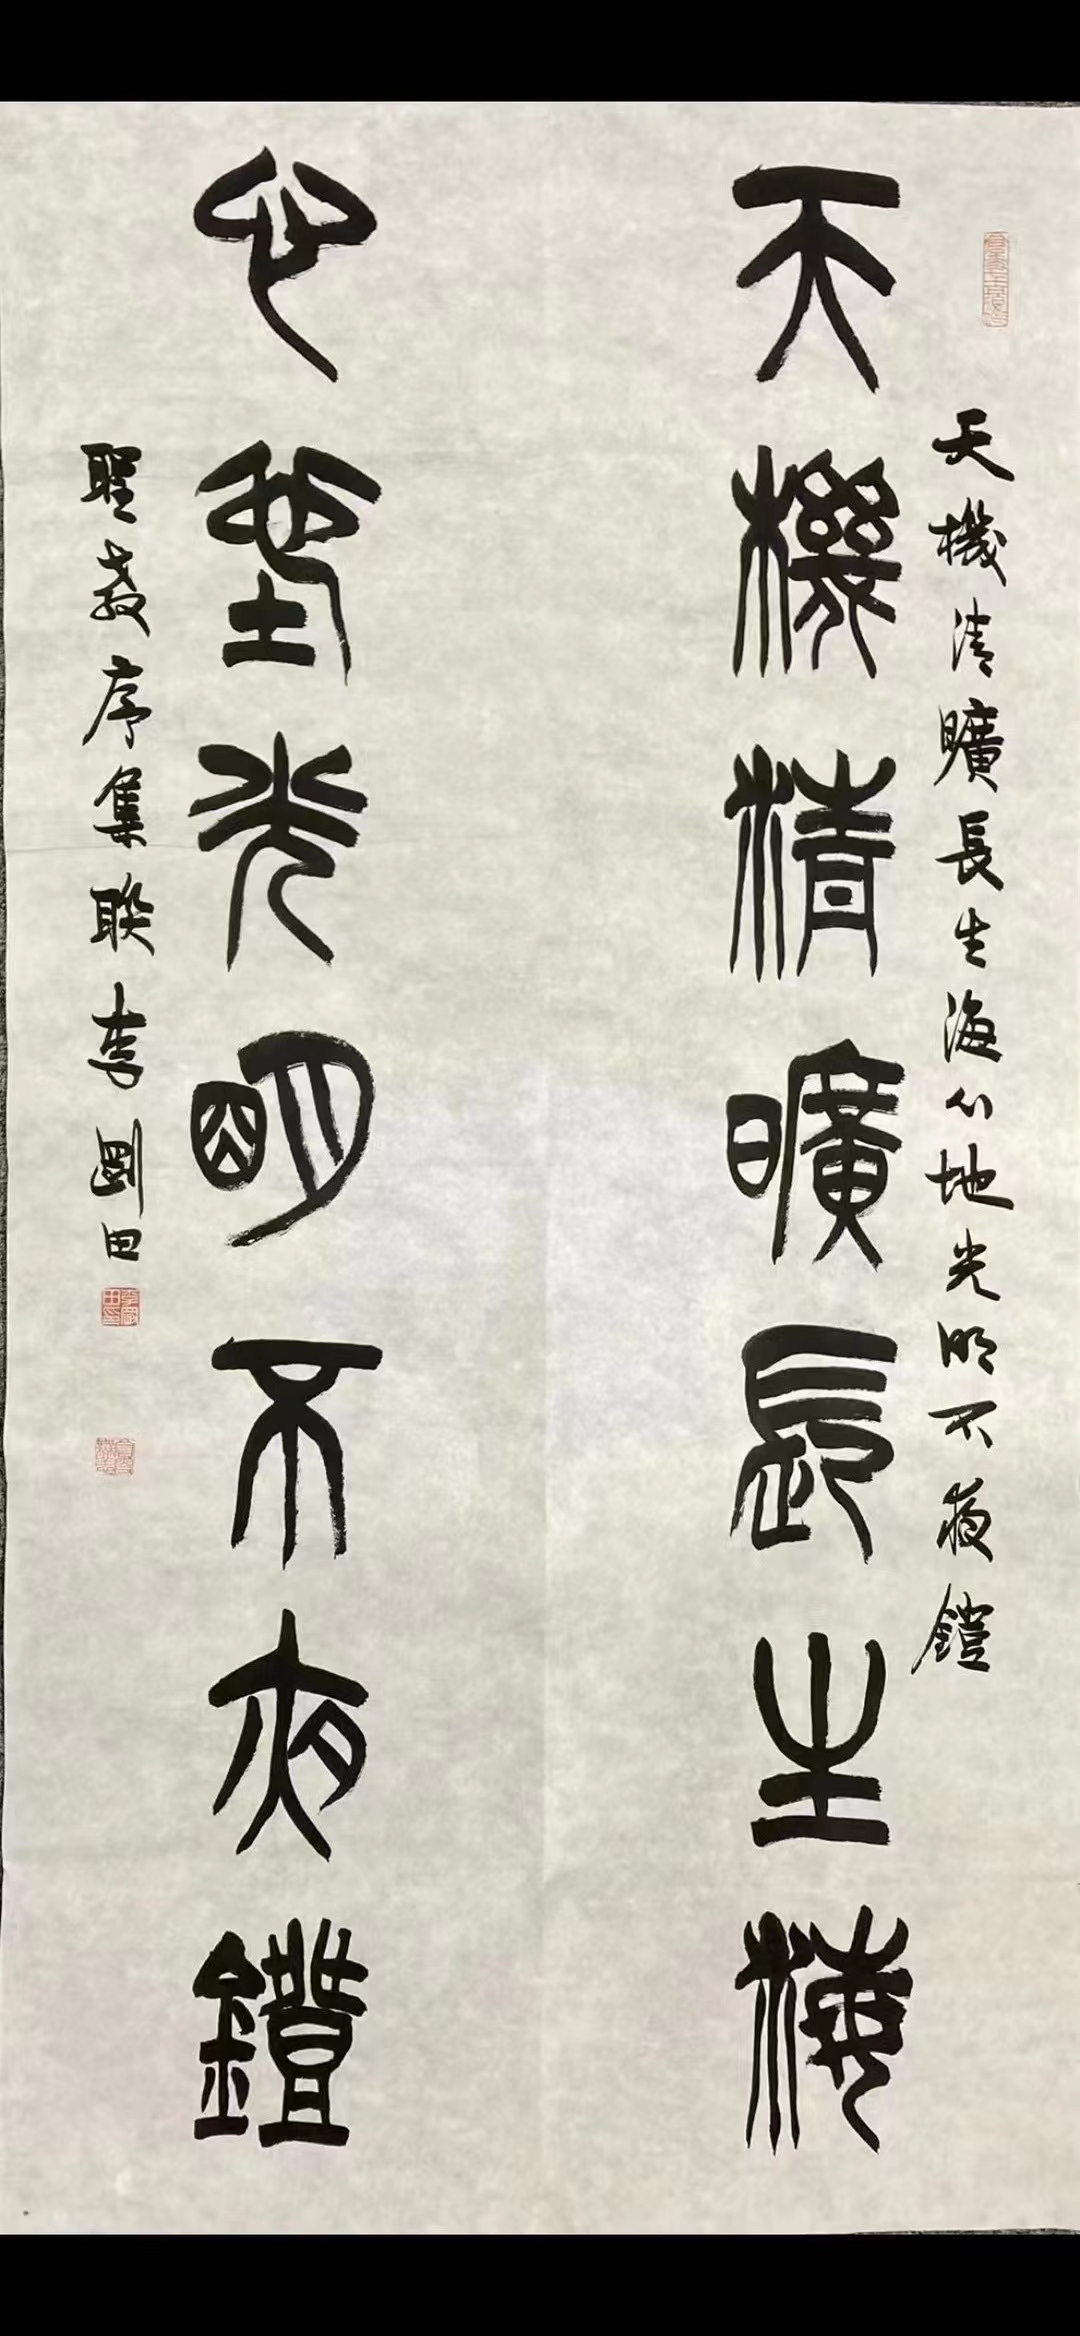 天機清曠長生海心地光明不夜鐙
天機清曠長生海
心地光明不夜鐙
聖教序集联李剛田